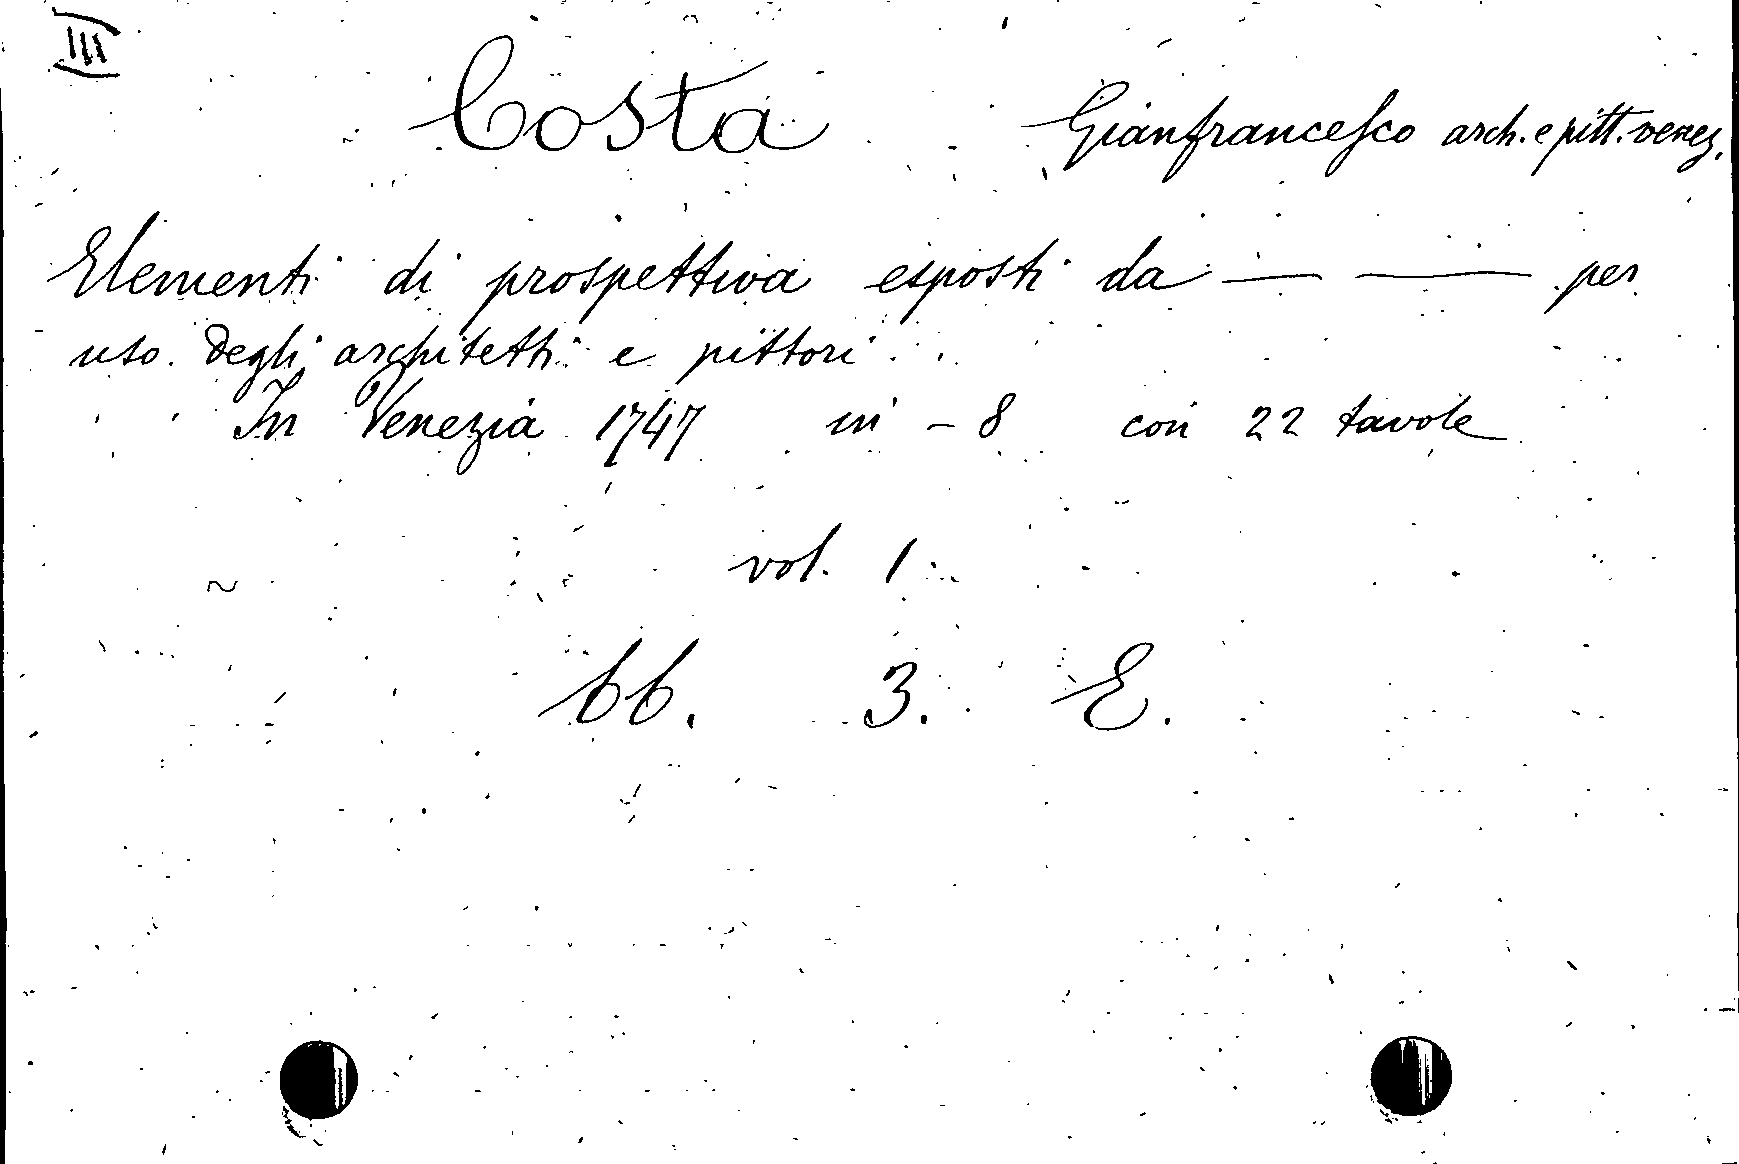 III
Costa Gianfrancesco arch. e pitt. venez.
Elementi di prospettiva esposti da — — per
uso degli architetti e pittori
In Venezia 1747 in - 8 con 22 tavole
vol. 1
66. 3. E.